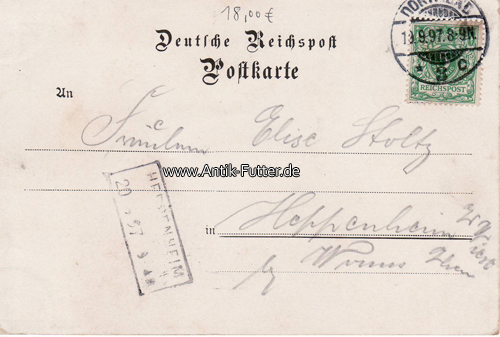 18,00 €
Deutsche Reichspost
Postkarte
DORTMUND
19.9.97. 8-9N.
3 c
REICHSPOST
An
Fräulein Elise Stoltz
www.Antik-Futter.de
HEPPENHEIM
20 97
in Heppenheim
Worms